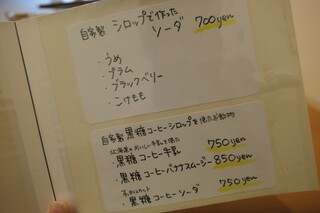 自家製 シロップで作った
ソーダ 700yen
・うめ
・プラム
・ブラックベリー
・こけもも
自家製 黒糖コーヒーシロップを使ったお飲物
北海道のおいしい牛乳を使った
・黒糖コーヒー牛乳 750yen
・黒糖コーヒーバナナスムージー 850yen
・黒糖コーヒーソーダ 750yen